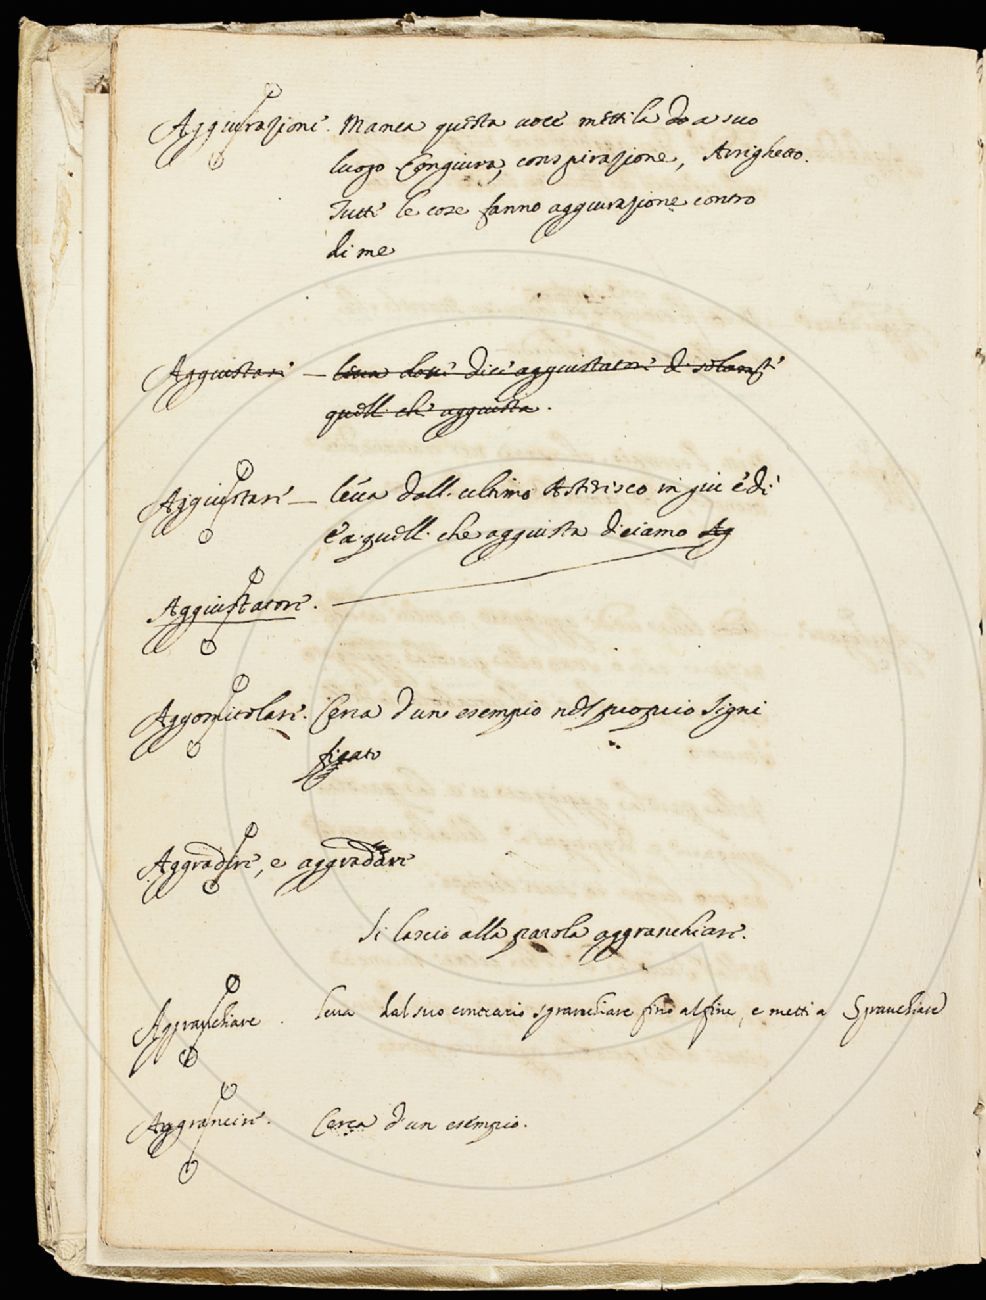 Aggiurazione. Manca questa voce mettila do a suo
luogo Congiura, conspirazione, Arrighetto.
Tutte le cose fanno aggiurazione contro
di me
Aggiustare – leva dove dice aggiustatore di solamte
quell. che aggiusta.
Aggiustare – leva dall. ultimo Asterisco in giu e di
e a quell. che aggiusta diciamo Ag
Aggiustatore.
Aggomitolare. Cerca d'uno esempio nel propio signi
ficato
Aggradire, e aggradare
Si lascio alla parola aggranchiare.
Aggranchiare. leva dal suo contrario sgranchiare fino al fine, e metti a Sgranchiare
Aggrancire. Cerca d'un esempio.